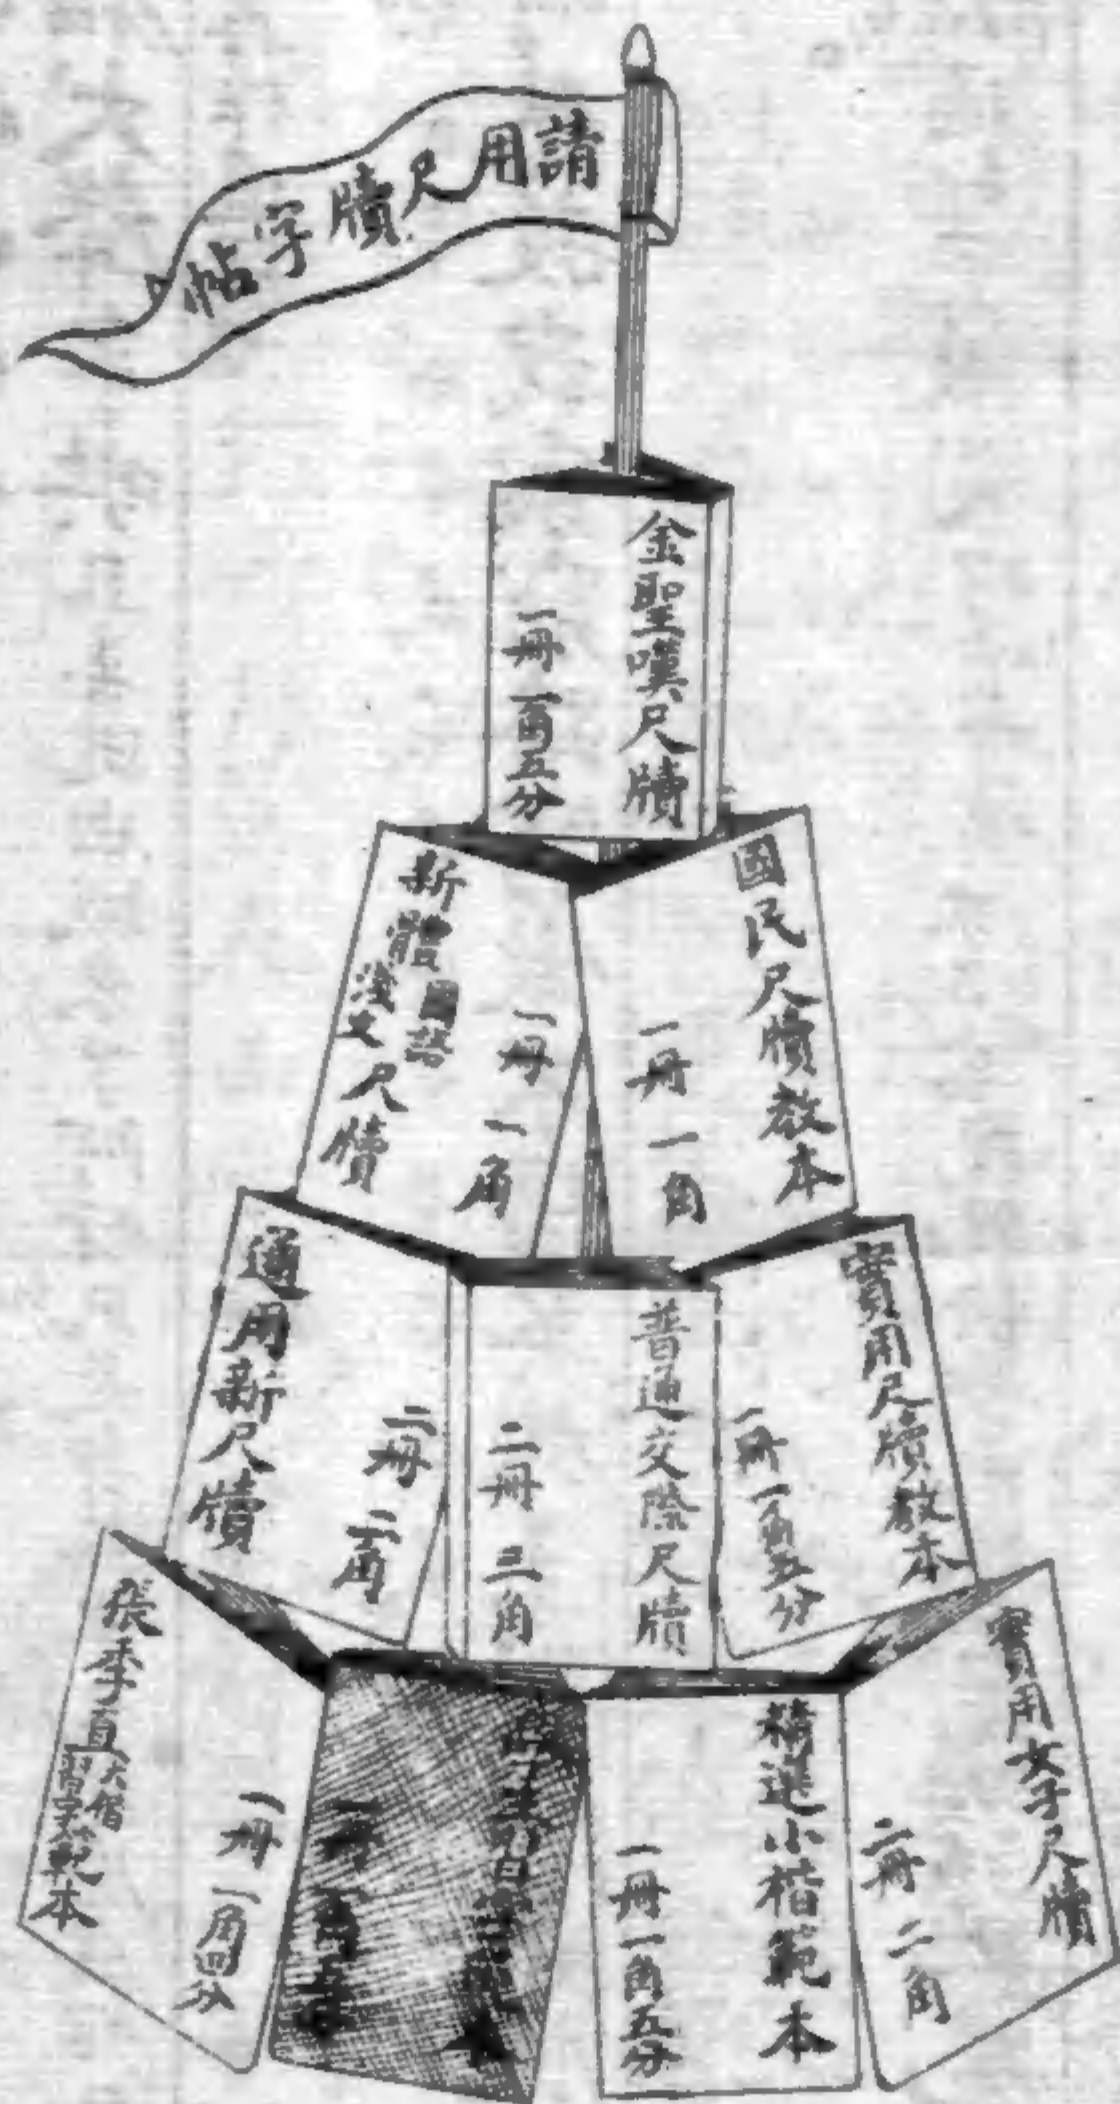 請用尺牘字帖
金聖嘆尺牘
一冊 一角五分
國民尺牘教本
一冊 一角
新體國語漢文尺牘
一冊 一角
實用尺牘教本
一冊 一角五分
普通交際尺牘
二冊 三角
通用新尺牘
二冊 二角
實用女子尺牘
二冊 二角
精選小楷範本
一冊 一角五分
一冊
張季直大楷習字範本
一冊 一角四分